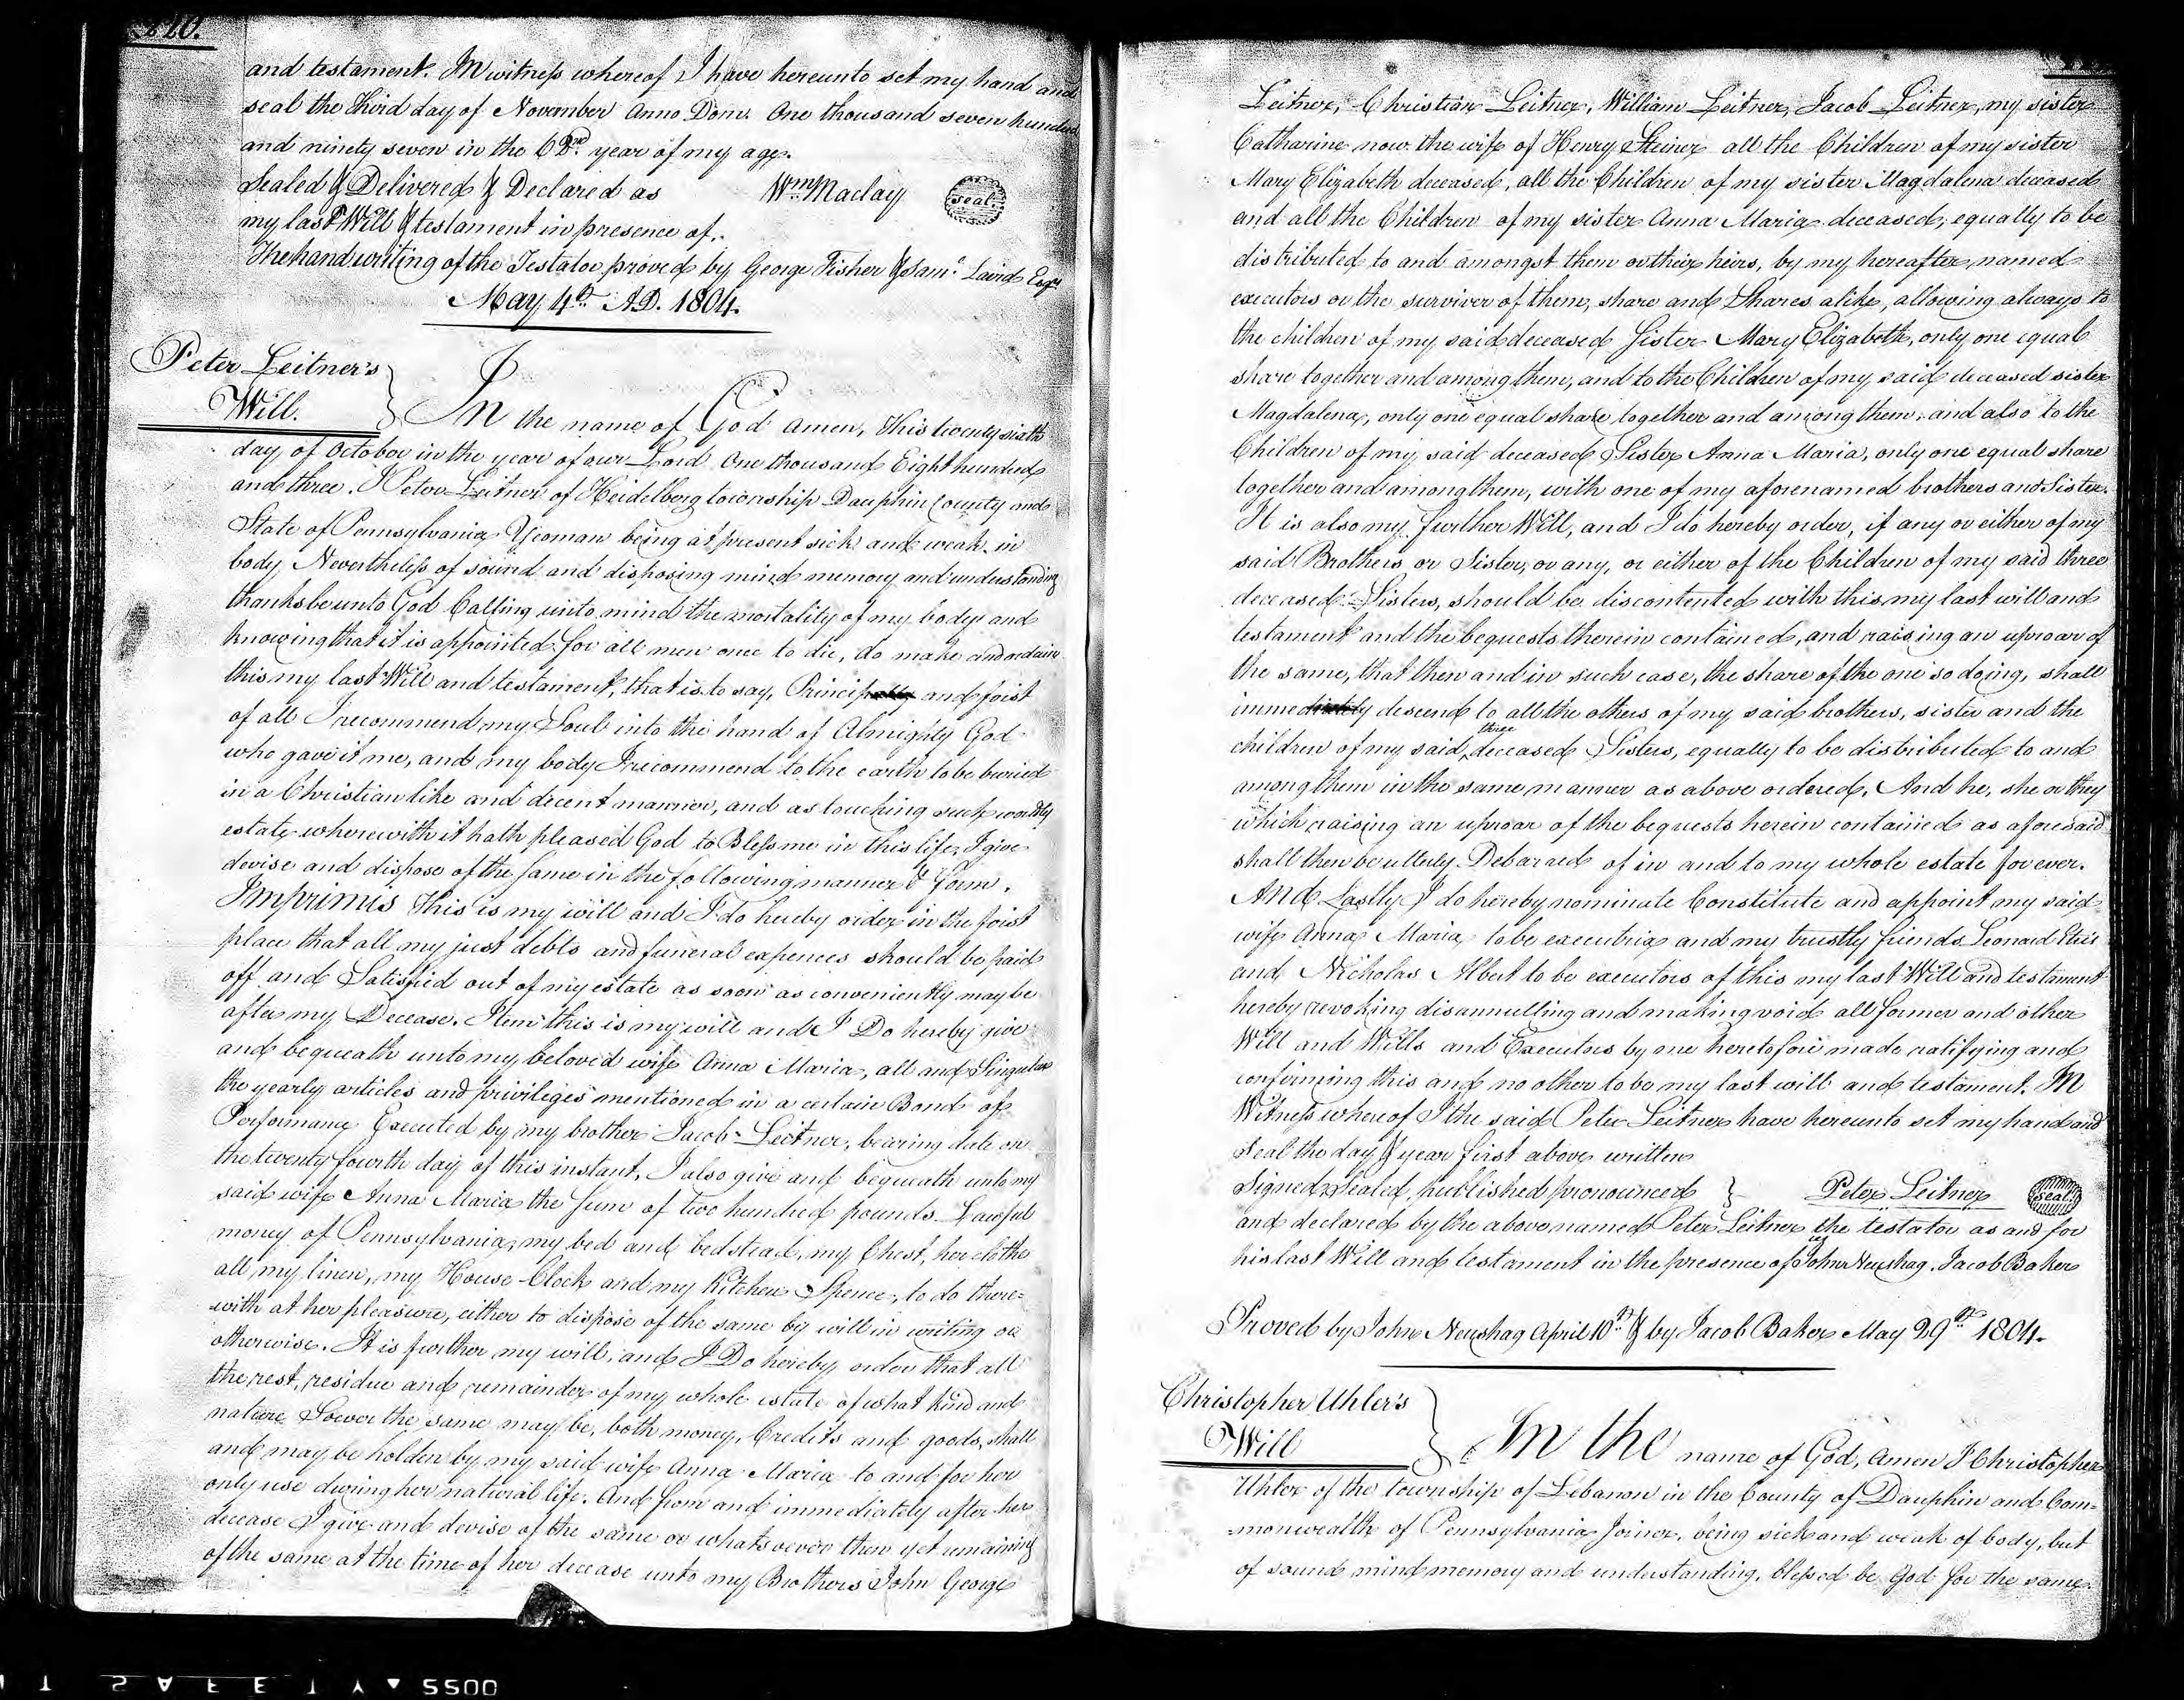 210.
and testament. In witness whereof I have hereunto set my hand and
seal the third day of November Anno Dom. One thousand seven hundred
and ninety seven in the 62nd year of my age.
Sealed & Delivered & Declared as Wm Maclay seal
my last Will & testament in presence of.
The handwriting of the Testator proved by George Fisher & Saml Laird Esqrs
May 4th A.D. 1804.
Peter Leitner's
Will.
In the name of God Amen, This twenty sixth
day of October in the year of our Lord One thousand Eight hundred
and three. I Peter Leitner of Heidelberg township Dauphin County and
State of Pennsylvania Yeoman being at present sick and weak in
body Nevertheless of sound and disposing mind memory and understanding
thanks be unto God Calling unto mind the mortality of my body and
knowing that it is appointed for all men once to die, do make and ordain
this my last Will and testament, that is to say, Principally and first
of all I recommend my Soul into the hand of Almighty God
who gave it me, and my body I recommend to the earth to be buried
in a Christian like and decent manner, and as touching such worldly
estate wherewith it hath pleased God to Bless me in this life, I give
devise and dispose of the same in the following manner & form.
Imprimis This is my will and I Do hereby order in the first
place that all my just debts and funeral expences should be paid
off and Satisfied out of my estate as soon as conveniently may be
after my Decease. Item this is my will and I Do hereby give
and bequeath unto my beloved wife Anna Maria, all and Singular
the yearly articles and priviliges mentioned in a certain Bond of
Performance Executed by my brother Jacob Leitner, bearing date on
the twenty fourth day of this instant, I also give and bequeath unto my
said wife Anna Maria the Sum of two hundred pounds Lawful
money of Pennsylvania, my bed and bedstead, my Chest, her clothe
all my linen, my House-Clock and my Kitchen Spence, to do there=
with at her pleasure, either to dispose of the same by will in writing or
otherwise. It is further my will, and I Do hereby order that all
the rest, residue and remainder of my whole estate of what kind and
nature Soever the same may be, both money, Credits and goods, shall
and may be holden by my said wife Anna Maria to and for her
only use during her natural life. And from and immediately after her
decease I give and devise of the same or whatsoever then yet remaining
of the same at the time of her decease unto my Brothers John George
Leitner, Christian Leitner, William Leitner, Jacob Leitner, my sister
Catharine now the wife of Henry Steiner all the Children of my sister
Mary Elizabeth deceased, all the Children of my sister Magdalena deceased
and all the Children of my sister Anna Maria deceased, equally to be
distributed to and amongst them or their heirs, by my hereafter named
executors or the surviver of them, share and Shares alike, allowing always to
the children of my said deceased Sister Mary Elizabeth, only one equal
share together and among them, and to the Children of my said deceased sister
Magdalena, only one equal share together and among them, and also to the
Children of my said deceased Sister Anna Maria, only one equal share
together and among them, with one of my aforenamed brothers and Sister.
It is also my further Will, and I do hereby order, if any or either of my
said Brothers or Sister, or any, or either of the Children of my said three
deceased Sisters, should be discontented with this my last will and
testament and the bequests therein contained, and raising an uproar of
the same, that then and in such case, the share of the one so doing, shall
immediately descend to all the others of my said brothers, sister and the
children of my said three deceased Sisters, equally to be distributed to and
among them in the same manner as above ordered. And he, she or they
which raising an uproar of the bequests herein contained as aforesaid
shall then be utterly Debarred of in and to my whole estate for ever.
And Lastly I do hereby nominate Constitute and appoint my said
wife Anna Maria to be executrix and my trustly friends Leonard
and Nicholas Albert to be executors of this my last Will and testament
hereby revoking disannulling and making void all former and other
Will and Wills and Executors by me heretofore made ratifying and
confirming this and no other to be my last will and testament. In
Witness whereof I the said Peter Leitner have hereunto set my hand and
Seal the day & year first above written
Signed Sealed, published pronounced Peter Leitner seal
and declared by the above named Peter Leitner the testator as and for
his last Will and testament in the presence of us John Neushag. Jacob Baker
Proved by John Neushag April 10th & by Jacob Baker May 29th 1804.
Christopher Uhler's
Will
In the name of God, Amen I Christopher
Uhler of the township of Lebanon in the County of Dauphin and Com=
=monwealth of Pennsylvania Joiner, being sick and weak of body, but
of sound mind memory and understanding, blessed be God for the same.
S A F E T Y 5500